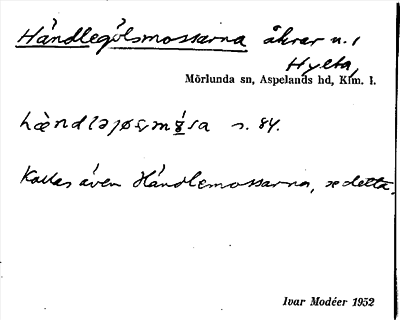 Händlegölsmossarna åkrar u. 1
Hylta,
Mörlunda sn, Aspelands hd, Klm. l.
s. 84.
Kallas även Händlemossarna, se detta.
Ivar Modéer 1952